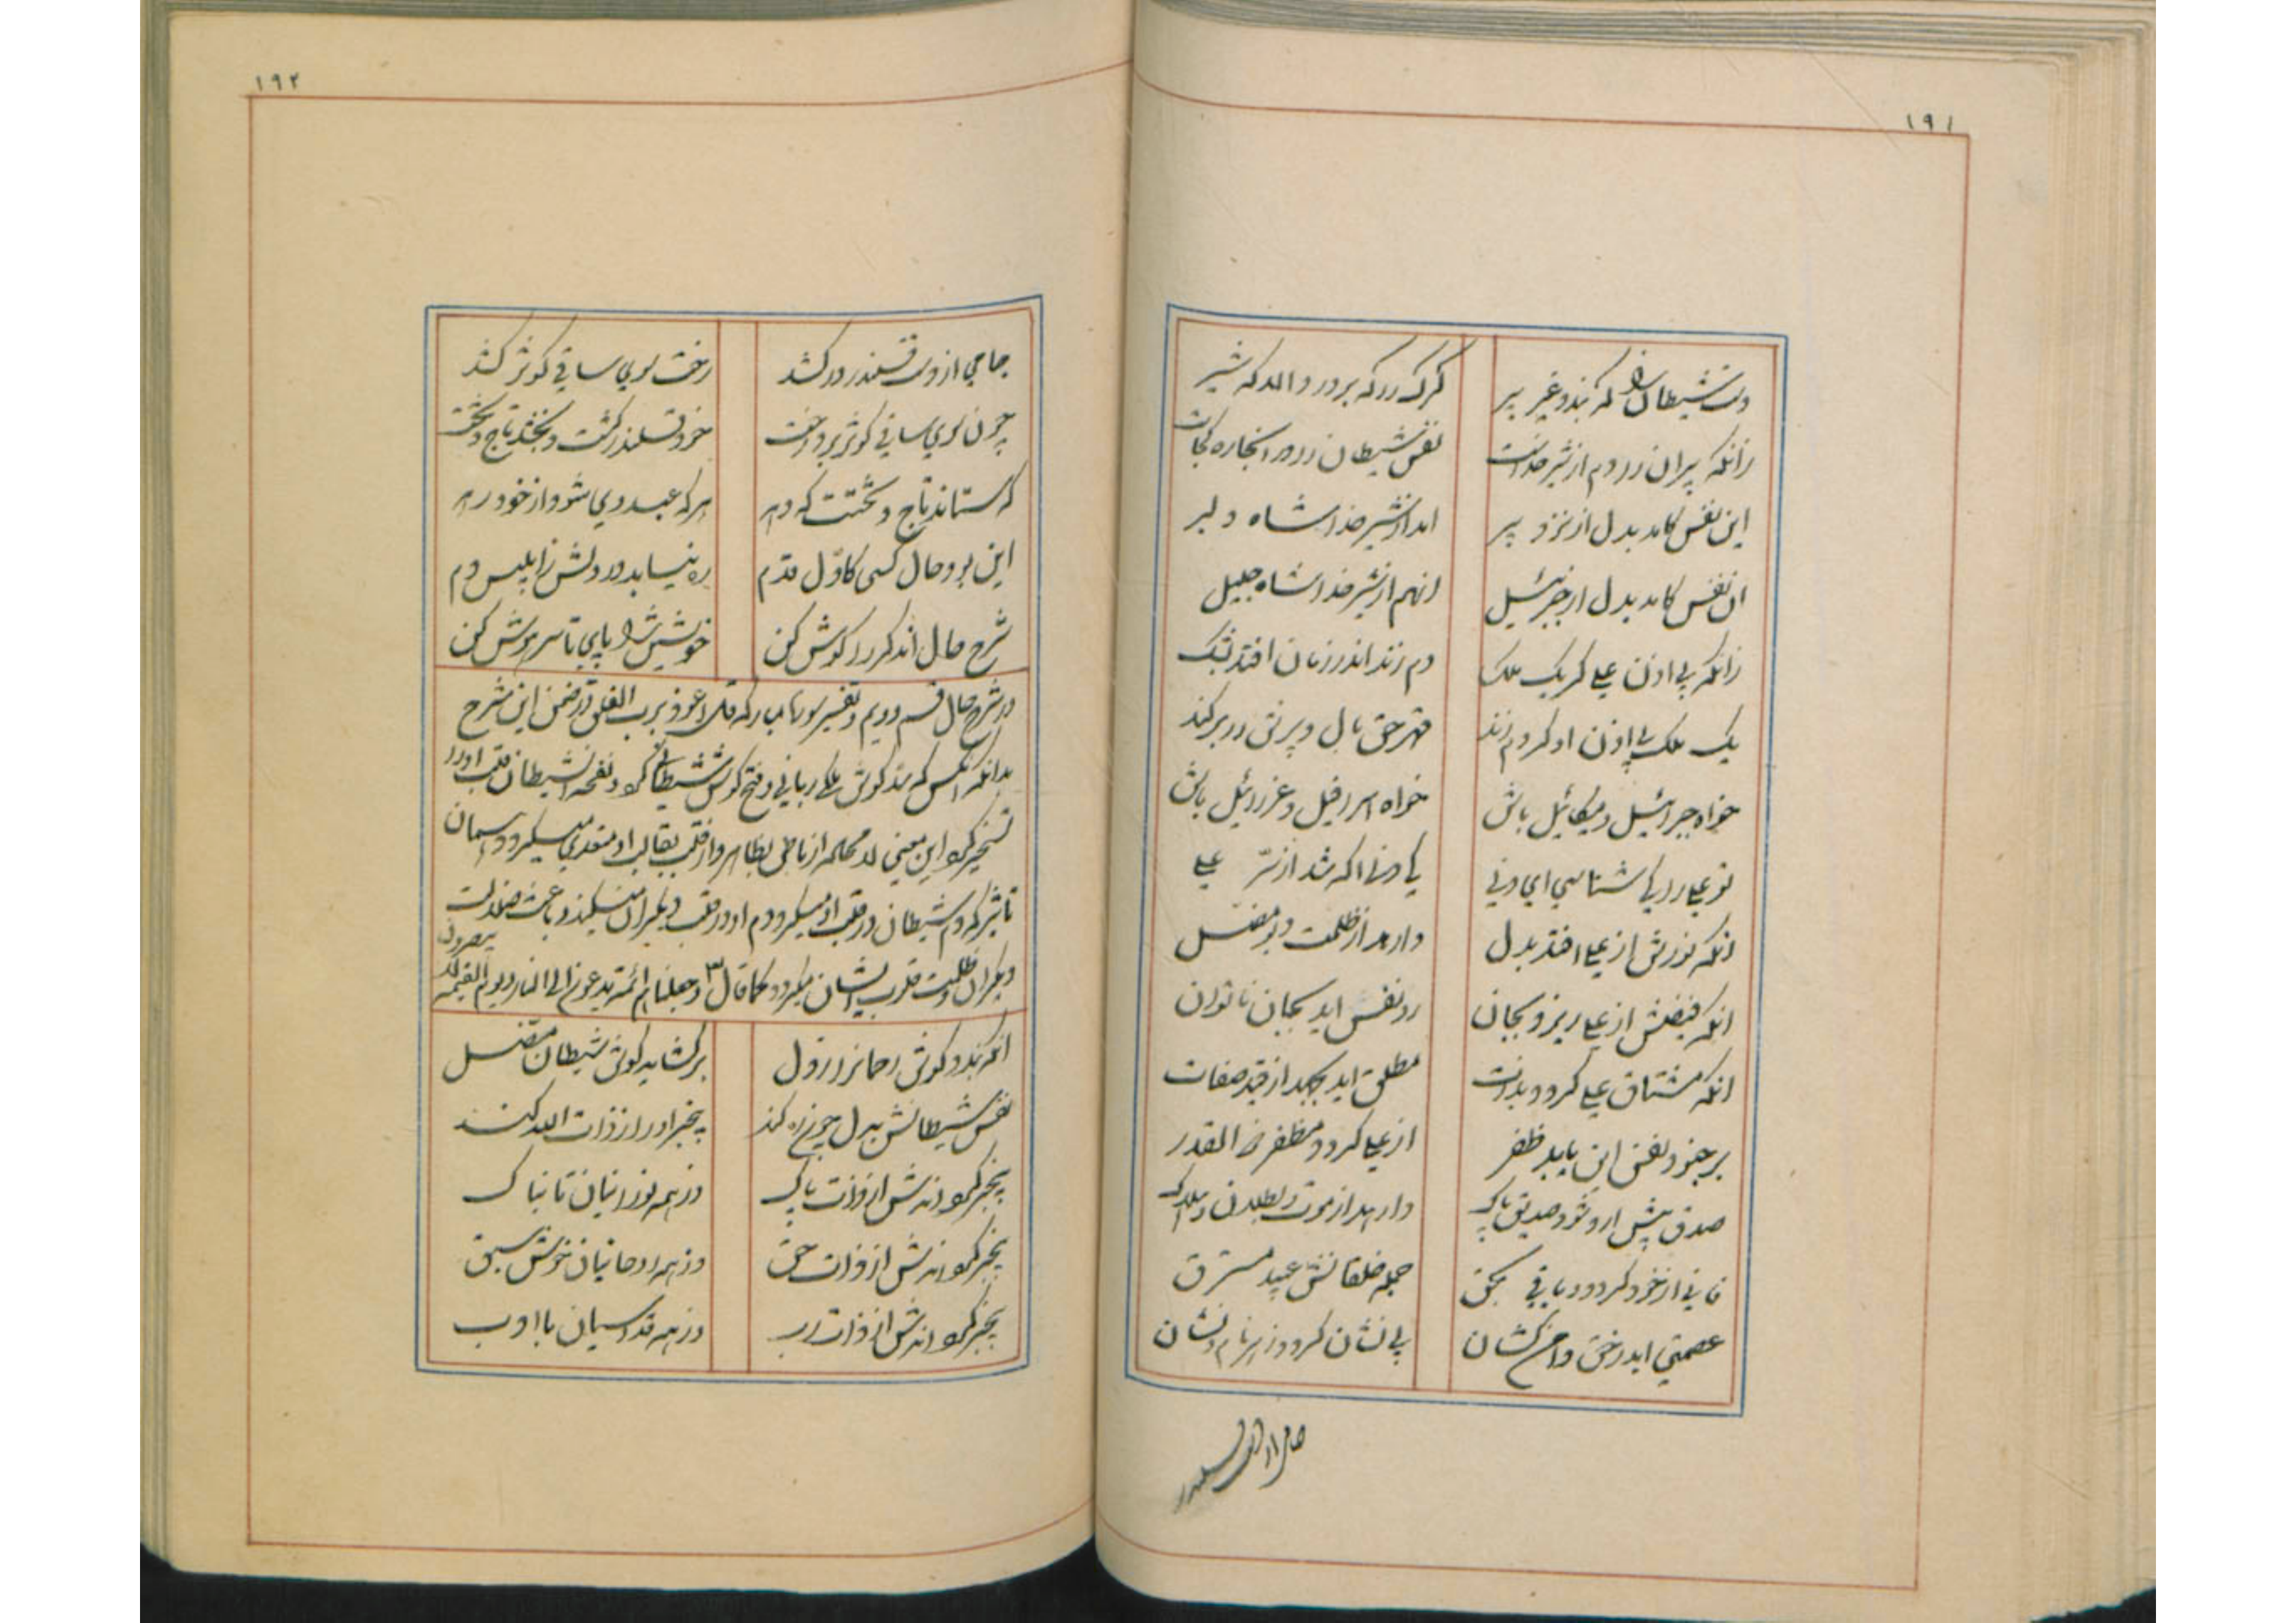 ۱۹۱
دست شیطان را که بندد غیر پیر
گرگ را که بر درد الا که شیر
زانکه پیران را دم از شیر خداست
نفس شیطان را در انجا ره کجاست
این نفس کاید بدل از نزد پیر
امد از شیر خدا شاه دلیر
ان نفس کاید بدل از جبرئیل
انهم از شیر خدا شاه جلیل
زانکه بی اذن علی گر یک ملک
دم زند اندر زمان افتد
یک ملک بی اذن او گر دم زند
قهر حق بال و پرش را بر کند
خواه جبرائیل و میکائیل باش
خواه اسرافیل و عزرائیل باش
تو علی را کی شناسی ای دنی
کی دنی اگه شد از سر علی
انکه نورش از علی افتد بدل
وارهد از ظلمت دیو مضل
انکه فیضش از علی ریزد بجان
رد نفس اید بجان ناتوان
انکه مشتاق علی گردد بذات
مطلق اید بجهد از قید صفات
بر جنود نفس این یابد ظفر
از علی گردد مظفر القدر
صدق پیش ارد شود صدیق پاک
وارهد از موت و بطلان و هلاک
فانی از خود گردد و باقی بحق
جمله خلقانش عبید مسترق
عصمتی اید رخش دامن کشان
بی نشان گردد ز هر نام و نشان
جامی از دست قلندر
۱۹۲
جامی از دست قلندر در کشد
رخت سوی ساقی کوثر کشد
چون سوی ساقی کوثر برد رخت
خود قلندر گشت و بخشد تاج و تخت
که ستاند تاج و تختت که دهد
هر که عبد وی شود از خود رهد
این بود حال کسی کاول قدم
ره نیابد در دلش ز ابلیس دم
شرح حال اندگر را گوش کن
خویش را پای تا سر هوش کن
در شرح حال قسم دویم و تفسیر سوره مبارکه قل اعوذ برب الفلق در ضمن این شرح
بدانکه انکس که سد گوش ملکی ربانی و فتح گوش شیطانی کرد و نفخه شیطان قلب او را
تسخیر کرد این معنی لا محاله از باطن بظاهر و از قلب بقالب او متعدی میگردد و همان
تاثیر که دم شیطان در قلب او میکرد دم او در قلب دیگران میکند و باعث ضلالت
دیگران و ظلمت قلوب ایشان میگردد کما قال و جعلناهم ائمة یدعون الی النار و یوم القیمة لا ینصرون
انکه بندد گوش رحمانرا ز اول
بر گشاید گوش شیطان مضل
نفس شیطانش بدل چون ره کند
بیخبر او را از ذات الله کند
بیخبر گرداندش از ذات پاک
وز همه نورانیان تابناک
بیخبر گرداندش از ذات حق
وز همه روحانیان خوش سبق
بیخبر گرداندش از ذات رب
وز همه قدسیان با ادب